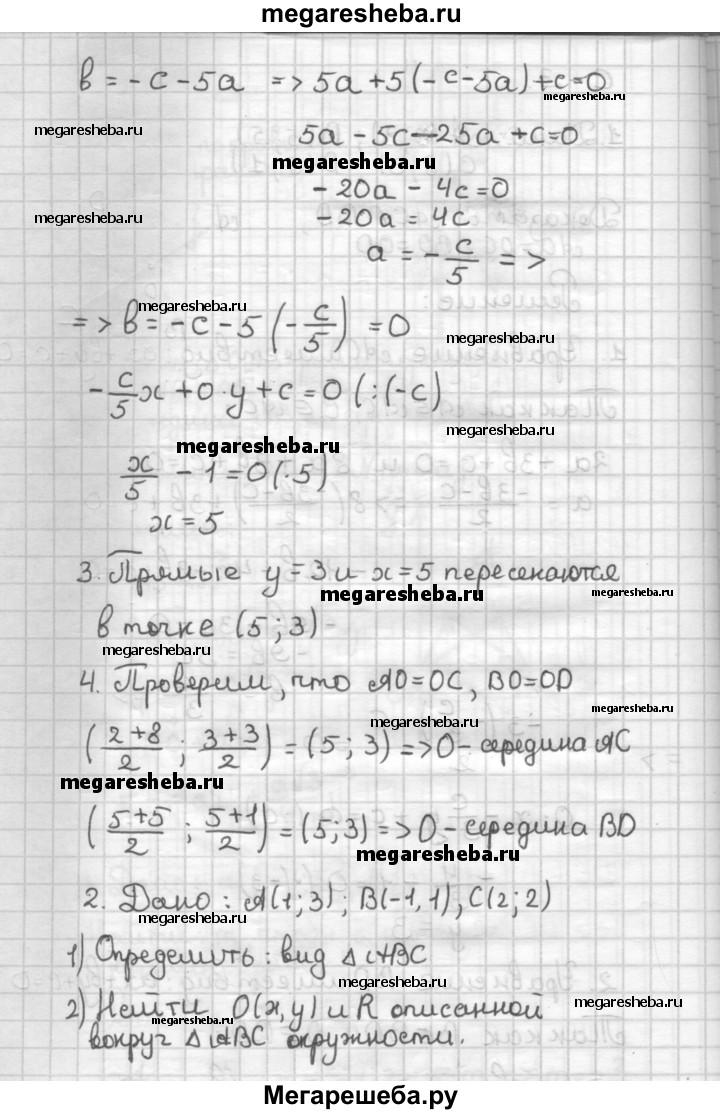 megaresheba.ru
в = -с - 5а => 5а + 5(-с - 5а) + с = 0
megaresheba.ru
megaresheba.ru
5а - 5с - 25а + с = 0
megaresheba.ru
- 20а - 4с = 0
megaresheba.ru
- 20а = 4с
а = - с/5 =>
megaresheba.ru
=> в = -с - 5 (- с/5) = 0
megaresheba.ru
- с/5 х + 0 · у + с = 0 (:(-с)
megaresheba.ru
megaresheba.ru
х/5 - 1 = 0 (·5)
х = 5
3. Прямые у = 3 и х = 5 пересекаются
megaresheba.ru
megaresheba.ru
в точке (5; 3)
megaresheba.ru
4. Проверим, что АО = ОС, ВО = ОD
megaresheba.ru
megaresheba.ru
(2+8/2 ; 3+3/2) = (5; 3) => О - середина АС
megaresheba.ru
(5+5/2 ; 5+1/2) = (5; 3) => О - середина BD
megaresheba.ru
2. Дано: А(1; 3); В(-1, 1), С(2; 2)
megaresheba.ru
1) Определить: вид △ АВС
megaresheba.ru
2) Найти О(х, у) и R описанной
megaresheba.ru
megaresheba.ru
вокруг △ АВС окружности.
Мегарешеба.ру